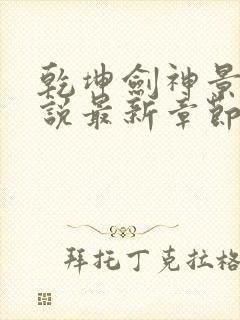 乾坤劍神景
說最新章節
拜托丁克拉格